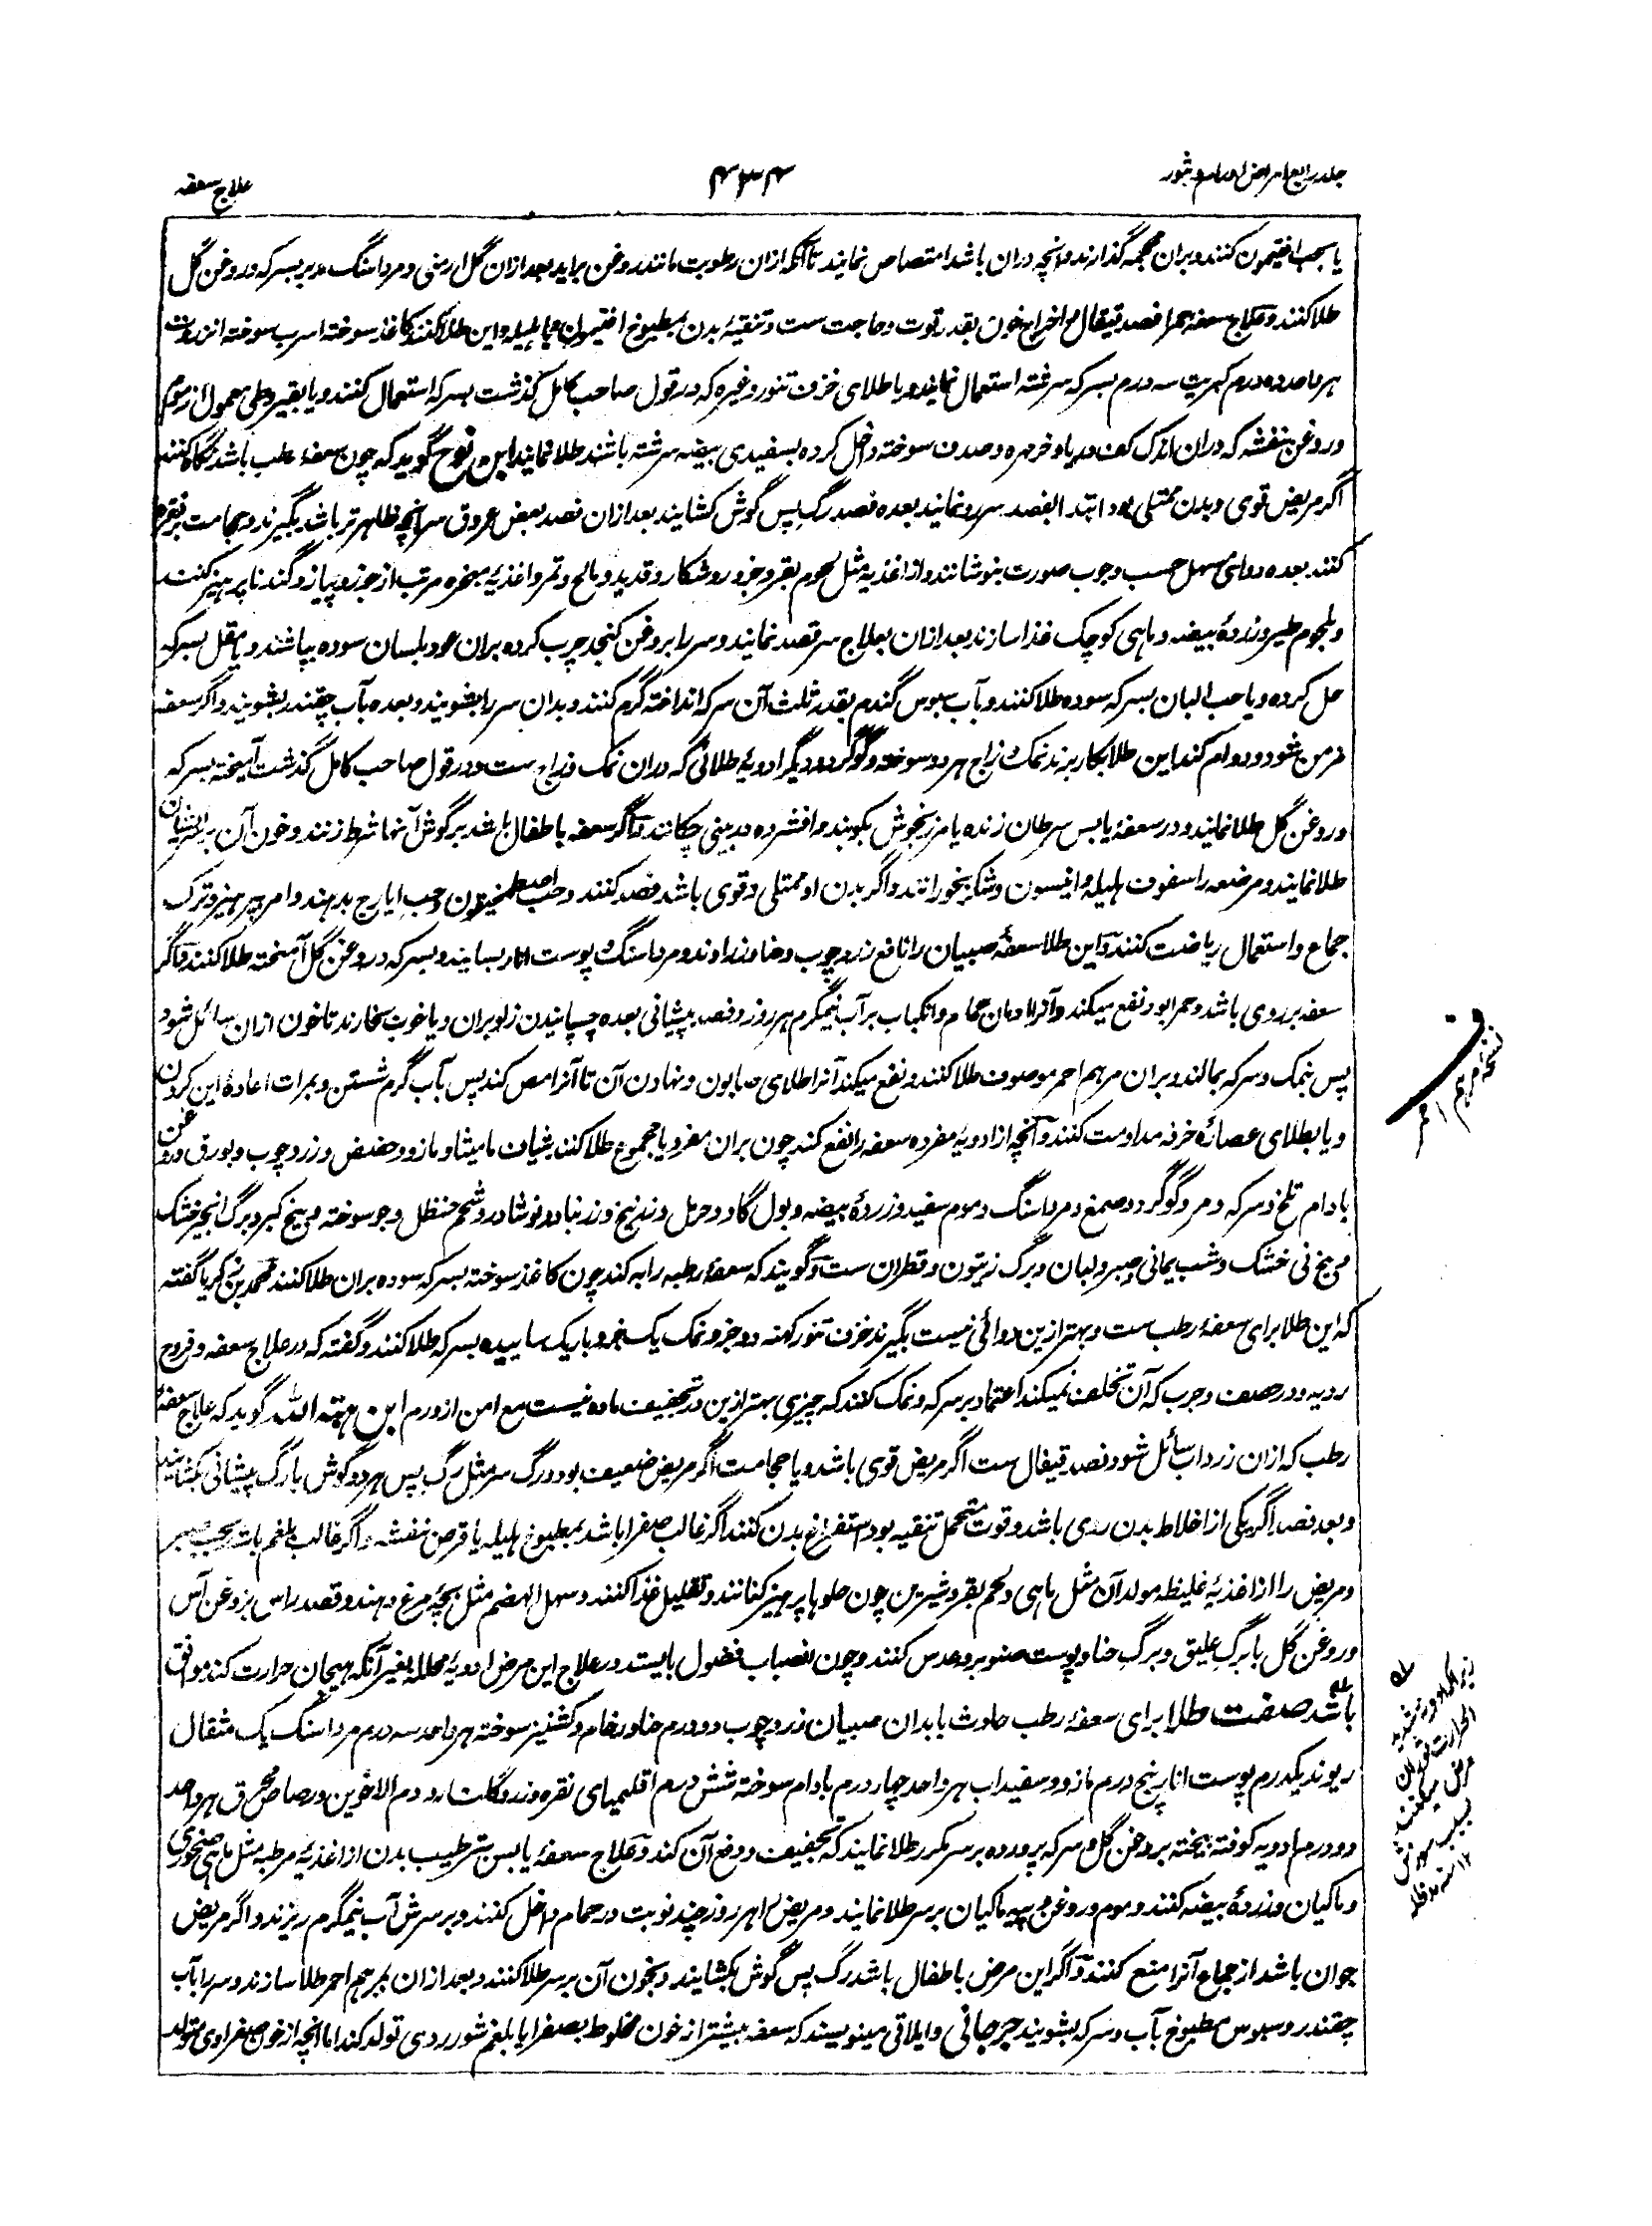 جلد رابع امراض اورام و بثور
۴۳۴
علاج سعفه
یا بحب افتیمون کنند و بران محجمه گذارند و آنچه دران باشد امتصاص نمایند تا آنکه ازان رطوبت مانند روغن براید بعد ازان گل ارمنی و مرداسنگ مدبر بسرکه و روغن گل
طلا کنند و علاج سعفه حمرا فصد قیفال و اخراج خون بقدر قوت و حاجت ست و تنقیهٔ بدن بمطبوخ افتیمون و یا هلیله و این طلا کنند کاغذ سوخته اسرب سوخته انزروت
هر واحد ده درم کبریت سه درم بسرکه سرشته استعمال نمایند و یا طلای خزف تنور و غیره که در قول صاحب کامل گذشت بسرکه استعمال کنند و یا بقیروطی معمول از موم
و روغن بنفشه که دران اندک کف دریا و خرمهره و صدف سوخته داخل کرده بسفیدی بیضه سرشته باشند طلا نمایند ابن نوح گوید که چون سعفهٔ رطب باشد نگاه کنند
اگر مریض قوی و بدن ممتلی بود ابتدا بفصد سررو نمایند بعده فصد رگ پس گوش کشایند بعد ازان فصد بعض عروق سر آنچه ظاهر تر باشد بگیرند و حجامت بر نقره
کنند بعده دوای مسهل حسب وجوب صورت بنوشانند و از اغذیه مثل لحوم بقر و جزور و شکار و قدید و مالح و تمر و اغذیهٔ مبخره مرتب از جوز و پیاز و گندنا پرهیز کنند
و بلحوم طیر و زردهٔ بیضه و ماهی کوچک غذا سازند بعد ازان بعلاج سر قصد نمایند و سر را بروغن کنجد چرب کرده بران عود بلسان سوده بپاشند و یا مقل بسرکه
حل کرده و یا حب البان بسرکه سوده طلا کنند و بآب سبوس گندم بقدر ثلث آن سرکه انداخته گرم کنند و بدان سر را بشویند و بعده بآب چقندر بشویند و اگر سعفه
مزمن شود و دوام کند این طلا بکار برند نمک و زاج هر دو سوخته و گوگرد و دیگر ادویهٔ طلائی که دران نمک و زاج ست و در قول صاحب کامل گذشت آمیخته بسرکه
و روغن گل طلا نمایند و در سعفهٔ یابس سرطان زنده یا مرزنجوش بکوبند و افشرده در بینی چکانند و اگر سعفه باطفال باشد بر گوش آنها شرط زنند و خون آن بر سر ایشان
طلا نمایند و مرضعه را سفوف هلیله و انیسون و شکر بخورانند و اگر بدن او ممتلی و قوی باشد فصد کنند و حب اصطمخیقون و حب ایارج بدهند و امر بپرهیز و ترک
جماع و استعمال ریاضت کنند و این طلا سعفهٔ صبیان را نافع زرد چوب و حنا و زراوند و مرداسنگ و پوست انار بسایند و بسرکه و روغن گل آمیخته طلا کنند و اگر
سعفه بر روی باشد و حمرا بود نفع میکند آنرا ادمان حمام و انکباب بر آب نیمگرم هر روز و فصد پیشانی بعده چسپانیدن زلو بران و یا خوب بخارند تا خون ازان سائل شود
پس بنمک و سرکه بمالند و بران مرهم احمر موصوف طلا کنند و نفع میکند آنرا طلای صابون و نهادن آن تا آنرا مص کند پس بآب گرم شستن و بمرات اعادهٔ این کردن
و یا بطلای عصارهٔ خرفه مداومت کنند و آنچه از ادویهٔ مفرده سعفه را نفع کند چون بران مفرد یا مجموع طلا کنند شیاف مامیثا و مازو و حضض و زرد چوب و بورق و روغن
بادام تلخ و سرکه و مر و گوگرد و صمغ و مرداسنگ و موم سفید و زردهٔ بیضه و بول گاو و حرمل و زرنیخ و زرنباد و نوشادر و شحم حنظل و جو سوخته و بیخ کبر و برگ انجیر خشک
و بیخ نی خشک و شب یمانی و صبر و لبان و برگ زیتون و قطران ست و گویند که سعفهٔ رطبه را به کند چون کاغذ سوخته بسرکه سوده بران طلا کنند محمد بن زکریا گفته
که این طلا برای سعفهٔ رطب ست و بهتر ازین دوائی نیست بگیرند خزف تنور کهنه دو جزو نمک یک جزو باریک ساییده بسرکه طلا کنند و گفته که در علاج سعفه و قروح
ردیه و در حصف و جرب که آن تخلف نمیکند اعتماد بر سرکه و نمک کنند که چیزی بهتر ازین در تجفیف ماده نیست مع امن از ورم ابن هبة الله گوید که علاج سعفهٔ
رطب که ازان زرداب سائل شود فصد قیفال ست اگر مریض قوی باشد و یا حجامت اگر مریض ضعیف بود و رگ سر مثل رگ پس هر دو گوش یا رگ پیشانی بکشایند
و بعد فصد اگر یکی از اخلاط بدن ردی باشد و قوت متحمل تنقیه بود استفراغ بدن کنند اگر غالب صفرا باشد بمطبوخ هلیله یا قرص بنفشه و اگر غالب بلغم باشد بحب صبر
و مریض را از اغذیهٔ غلیظه مولد آن مثل ماهی و لحم بقر و شیرین چون حلوها پرهیز کنانند و تقلیل غذا کنند و سهل الهضم مثل بچهٔ مرغ دهند و قصد راس بروغن آس
و روغن گل یا برگ علیق و برگ حنا و پوست صنوبر و عدس کنند و چون انصباب فضول بایستد در علاج این مرض ادویهٔ محلله بغیر آنکه هیجان حرارت کند موافق
باشد صفت طلا برای سعفهٔ رطب حادث بابدان صبیان زرد چوب دو درم حنا و رخام و کشنیز سوخته هر واحد سه درم مرداسنگ یک مثقال
ریوند یکدرم پوست انار پنج درم مازو و سفیداب هر واحد چهار درم بادام سوخته شش درم اقلیمیای نقره و زر و گلنار و دم الاخوین و رصاص محرق هر واحد
دو درم ادویه کوفته بیخته بروغن گل و سرکه پرورده بر سر مکرر طلا نمایند که تجفیف و رفع آن کند و علاج سعفهٔ یابس ترطیب بدن از اغذیهٔ مرطبه مثل ماهی صخوری
و ماکیان و زردهٔ بیضه کنند و موم و روغن و پیه ماکیان بر سر طلا نمایند و مریض را هر روز چند نوبت در حمام داخل کنند و بر سرش آب نیمگرم ریزند و اگر مریض
جوان باشد از جماع آنرا منع کنند و اگر این مرض باطفال باشد رگ پس گوش بکشایند و بخون آن بر سر طلا کنند و بعد ازان بمرهم احمر طلا سازند و سر را بآب
چقندر و سبوس مطبوخ بآب و سرکه بشویند جرجانی و ایلاقی مینویسند که سعفه بیشتر از خون مخلوط بصفرا یا بلغم شور ردی تولد کند اما آنچه از خون صفراوی متولد
ف
نسخهٔ مرهم احمر